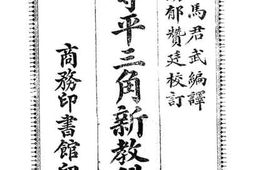 馬君武編譯
郁贊廷校訂
平三角新教
商務印書館